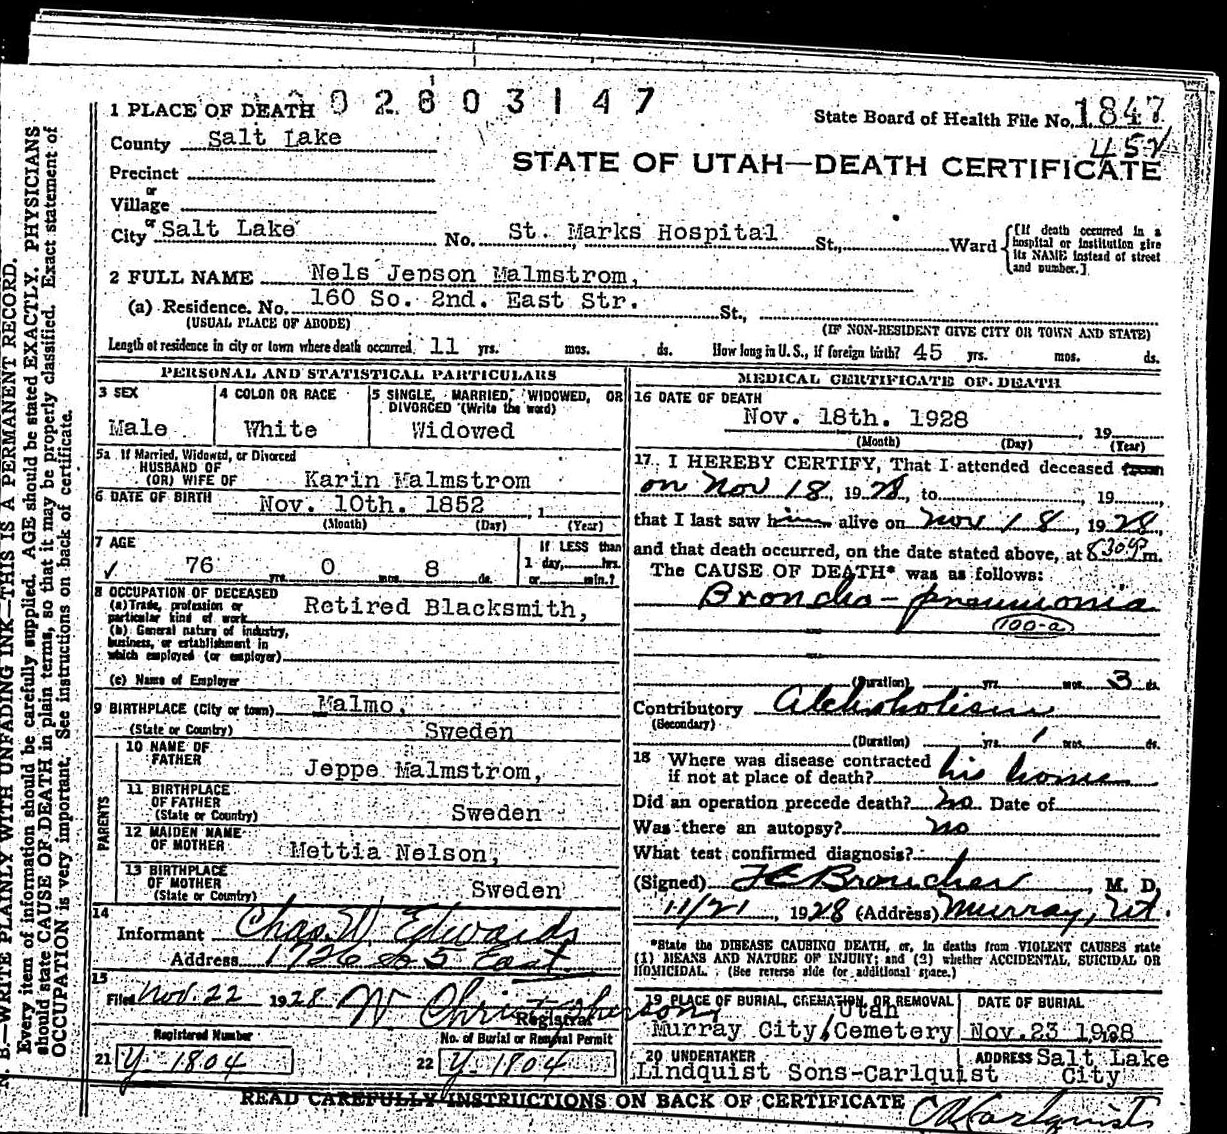 0 2 8 0 3 1 4 7
1 PLACE OF DEATH
State Board of Health File No. 1847
452
County Salt Lake
STATE OF UTAH—DEATH CERTIFICATE
Precinct
or
Village
or
City Salt Lake No. St. Marks Hospital St., Ward
{If death occurred in a
hospital or institution give
its NAME instead of street
and number.]
2 FULL NAME Nels Jepson Malmstrom,
(a) Residence. No. 160 So. 2nd. East Str. St.,
(USUAL PLACE OF ABODE) (IF NON-RESIDENT GIVE CITY OR TOWN AND STATE)
Length of residence in city or town where death occurred 11 yrs. mos. ds. How long in U. S., if foreign birth? 45 yrs. mos. ds.
PERSONAL AND STATISTICAL PARTICULARS
3 SEX
Male
4 COLOR OR RACE
White
5 SINGLE, MARRIED, WIDOWED, OR
DIVORCED (Write the word)
Widowed
5a If Married, Widowed, or Divorced
HUSBAND OF
(OR) WIFE OF Karin Malmstrom
6 DATE OF BIRTH Nov. 10th. 1852 , 1
(Month) (Day) (Year)
7 AGE
✓ 76 yrs. 0 mos. 8 ds.
If LESS than
1 day, hrs.
or min.?
8 OCCUPATION OF DECEASED
(a) Trade, profession or
particular kind of work Retired Blacksmith,
(b) General nature of industry,
business, or establishment in
which employed (or employer)
(c) Name of Employer
9 BIRTHPLACE (City or town) Malmo,
(State or Country) Sweden
PARENTS
10 NAME OF
FATHER Jeppe Malmstrom,
11 BIRTHPLACE
OF FATHER
(State or Country) Sweden
12 MAIDEN NAME
OF MOTHER Mettia Nelson,
13 BIRTHPLACE
OF MOTHER
(State or Country) Sweden
14
Informant Chas. W. Edwards
Address 1726 So 5 East
15
Filed Nov. 22 1928 W Christopherson
Registrar
Registered Number No. of Burial or Removal Permit
21 Y-1804 22 Y-1804
MEDICAL CERTIFICATE OF DEATH
16 DATE OF DEATH
Nov. 18th. 1928 , 19
(Month) (Day) (Year)
17 I HEREBY CERTIFY, That I attended deceased from
on Nov 18, 1928, to , 19 ,
that I last saw him alive on Nov 18, 1928,
and that death occurred, on the date stated above, at 8 30 P m.
The CAUSE OF DEATH* was as follows:
Broncho-pneumonia
100-a
(Duration) yrs. mos. 3 ds.
Contributory Alcoholism
(Secondary)
(Duration) yrs. 1 mos. ds.
18 Where was disease contracted
if not at place of death? his home
Did an operation precede death? no Date of
Was there an autopsy? no
What test confirmed diagnosis?
(Signed) , M. D.
11/21, 1928 (Address) Murray, Ut.
*State the DISEASE CAUSING DEATH, or, in deaths from VIOLENT CAUSES state
(1) MEANS AND NATURE OF INJURY; and (2) whether ACCIDENTAL, SUICIDAL OR
HOMICIDAL. (See reverse side for additional space.)
19 PLACE OF BURIAL, CREMATION, OR REMOVAL
Utah
Murray City Cemetery
DATE OF BURIAL
Nov. 23 1928
20 UNDERTAKER
Lindquist Sons-Carlquist
ADDRESS Salt Lake
City
READ CAREFULLY INSTRUCTIONS ON BACK OF CERTIFICATE
N. B.—WRITE PLAINLY WITH UNFADING INK—THIS IS A PERMANENT RECORD.
Every item of information should be carefully supplied. AGE should be stated EXACTLY. PHYSICIANS
should state CAUSE OF DEATH in plain terms, so that it may be properly classified. Exact statement of
OCCUPATION is very important. See instructions on back of certificate.